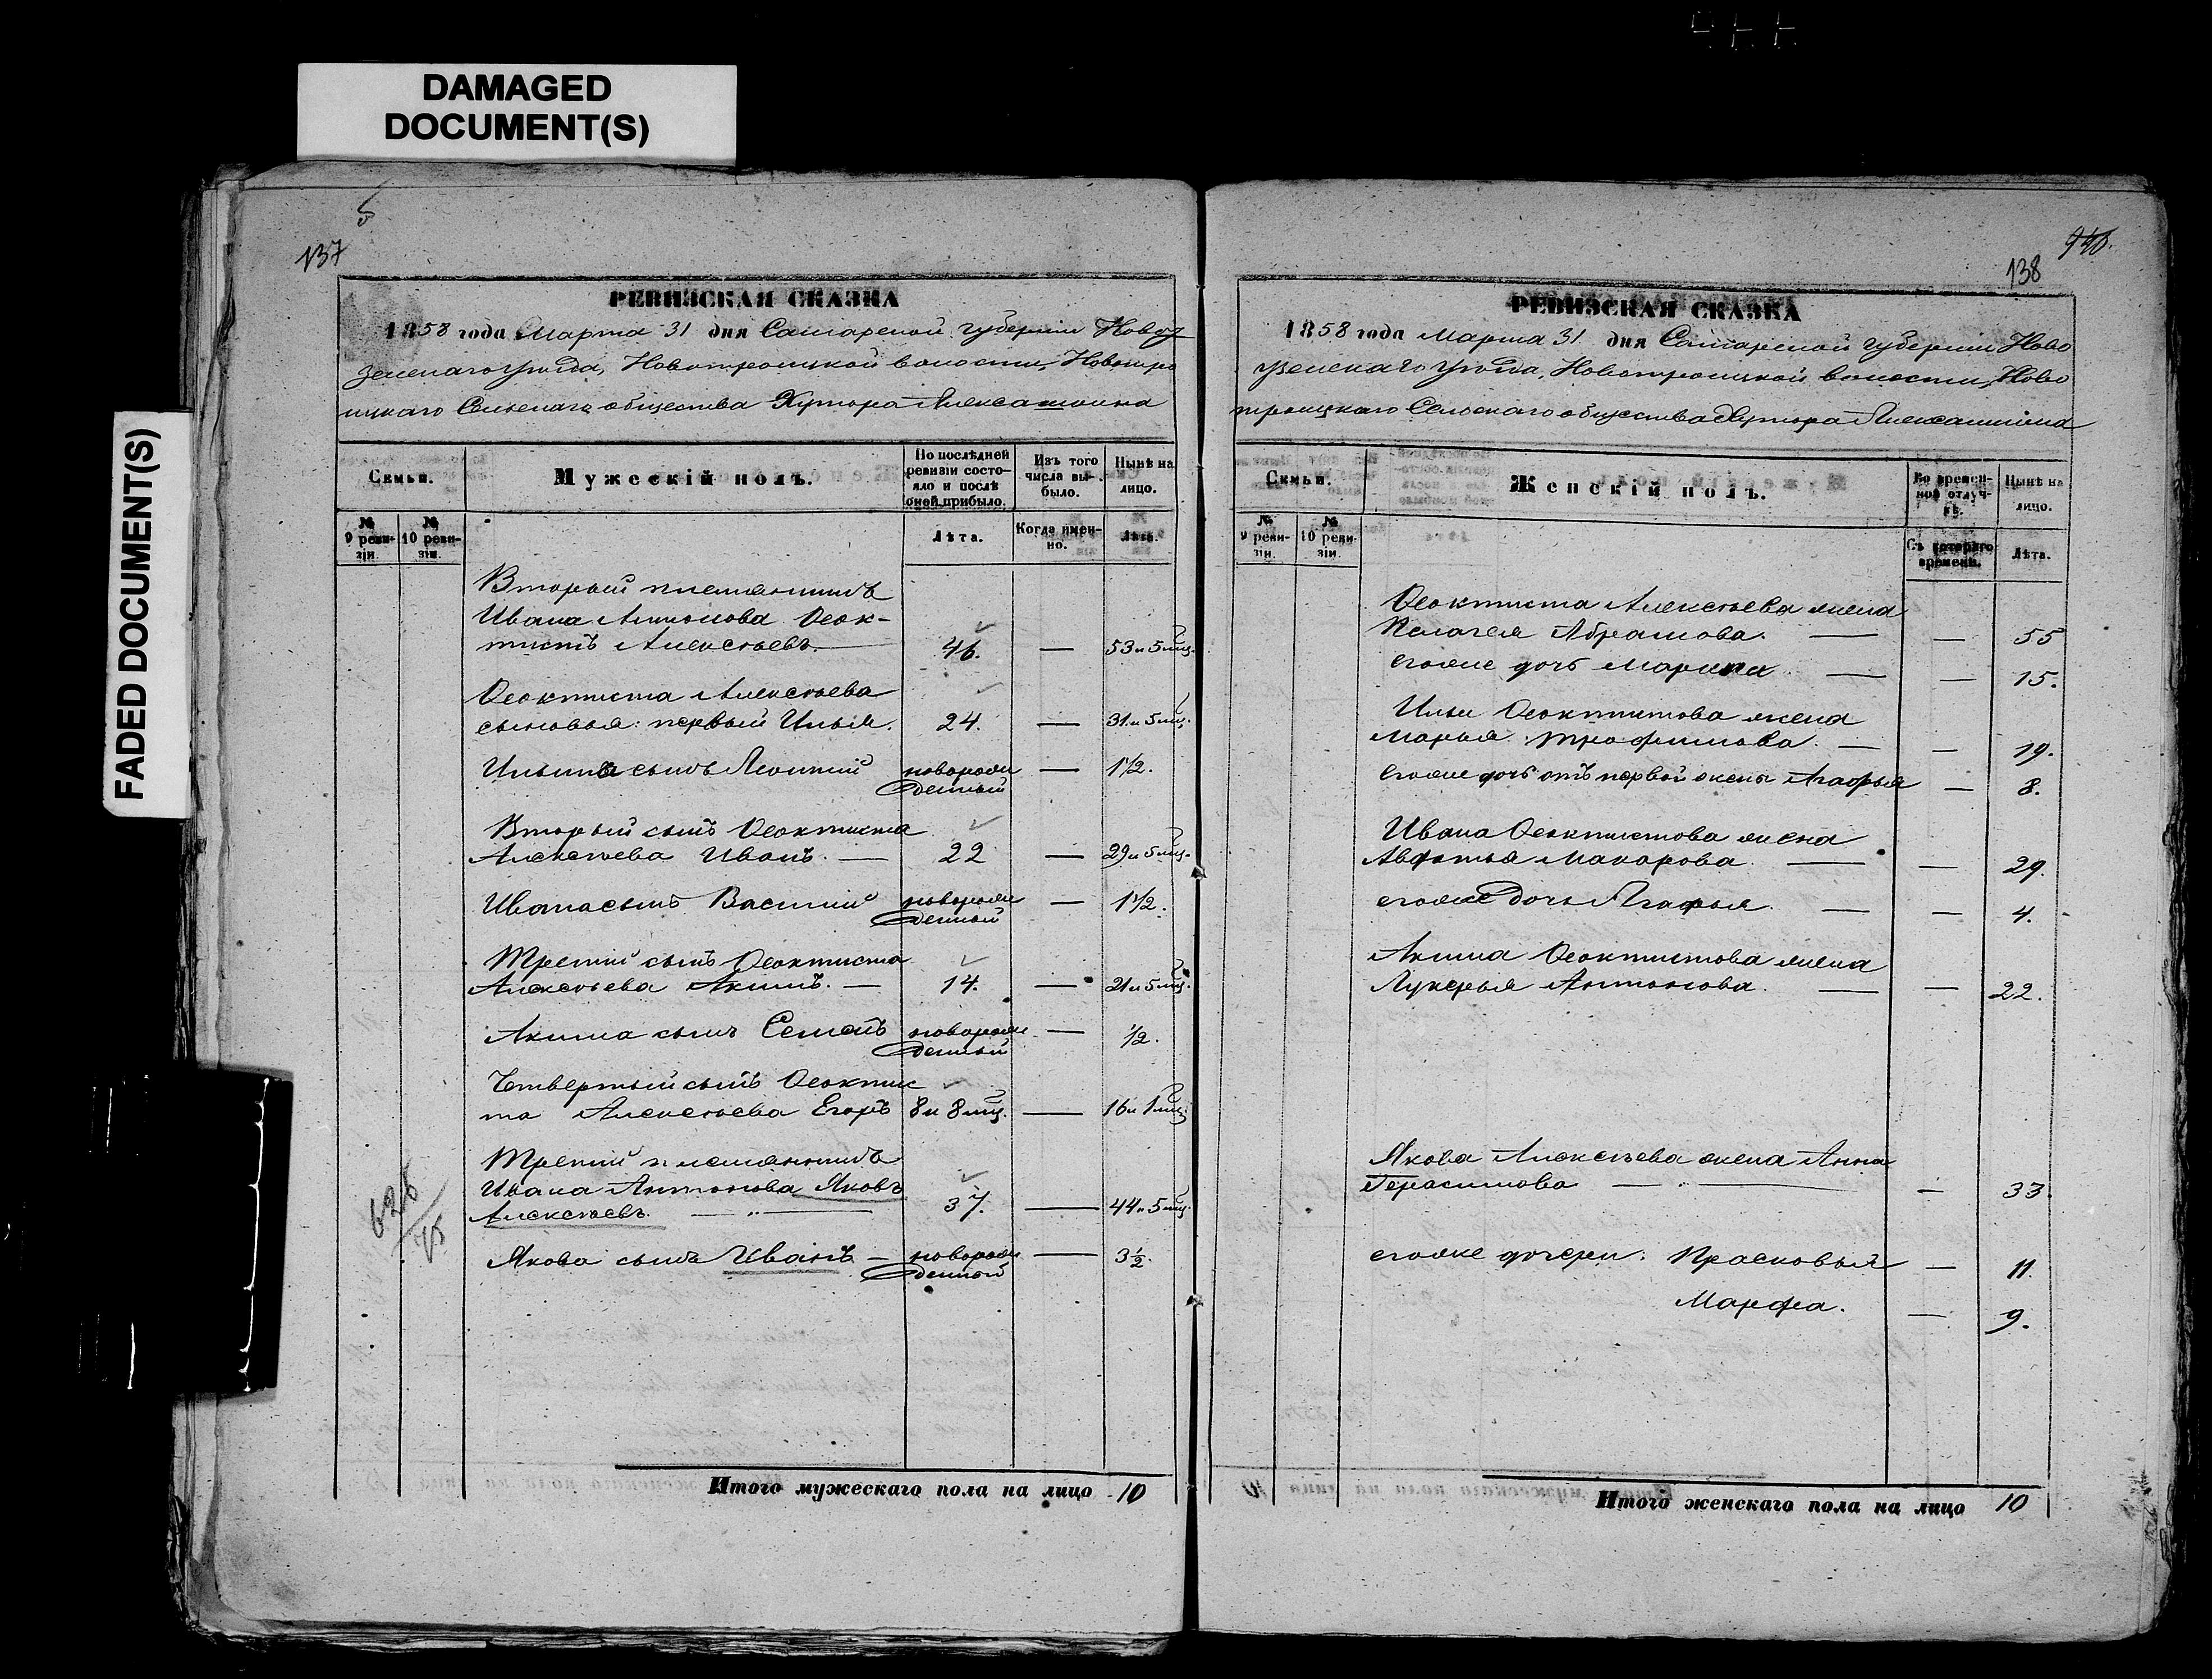 DAMAGED
DOCUMENT(S)
FADED DOCUMENT(S)
137
РЕВИЗСКАЯ СКАЗКА
1858 года Марта 31 дня Самарской губернiи Новоу
зенскаго уѣзда, Новотроицкой волости, Новотро
ицкаго Сельскаго общества Хутора Алексашкина
Семьи.
Мужескiй полъ.
По послѣдней
ревизiи состо-
яло и послѣ
оной прибыло.
Изъ того
числа вы-
было.
Нынѣ на
лицо.
№
9 реви-
зiи.
№
10 реви-
зiи.
Лѣта.
Когда имен-
но.
Лѣта.
Вторый племянникъ
Ивана Антонова Ѳеок-
тистъ Алексѣевъ. 46. — 53 и 5 мц.
Ѳеоктиста Алексѣева
сыновья: первый Илья. 24. — 31 и 5 мц.
Ильи сынъ Леонтiй новорож — 1 1/2.
денный
Вторый сынъ Ѳеоктиста
Алексѣева Иванъ. — 22 — 29 и 5 мц.
Ивана сынъ Василiй новорож — 1 1/2.
денный
Третiй сынъ Ѳеоктиста
Алексѣева Акимъ. — 14. — 21 и 5 мц.
Акима сынъ Семенъ новорож — 1/2.
денный
Четвертый сынъ Ѳеоктис
та Алексѣева Егоръ 8 и 8 мц. — 16 и 1 мц.
Третiй племянникъ
Ивана Антонова Яковъ
Алексѣевъ. — „ — 37. — 44 и 5 мц.
Якова сынъ Иванъ — новорож — 3 1/2.
денный
Итого мужескаго пола на лицо 10
138
РЕВИЗСКАЯ СКАЗКА
1858 года Марта 31 дня Самарской губернiи Ново
узенскаго уѣзда, Новотроицкой волости, Ново
троицкаго Сельскаго общества Хутора Алексашкина
Семьи.
Женскiй полъ.
Во времен-
ной отлуч-
кѣ.
Нынѣ на
лицо.
№
9 реви-
зiи.
№
10 реви-
зiи.
Съ котораго
времени.
Лѣта.
Ѳеоктиста Алексѣева жена
Пелагея Абрамова. — — 55
его же дочь Марина — — 15.
Ильи Ѳеоктистова жена
Марья Трофимова. — — 19.
его же дочь отъ первой жены Агафья — 8.
Ивана Ѳеоктистова жена
Авдотья Макарова. — — 29.
его же дочь Агафья. — — 4.
Акима Ѳеоктистова жена
Лукерья Антонова. — — 22.
Якова Алексѣева жена Анна
Герасимова — „ — — 33.
его же дочери: Прасковья — 11.
Марфа. — 9.
Итого женскаго пола на лицо 10